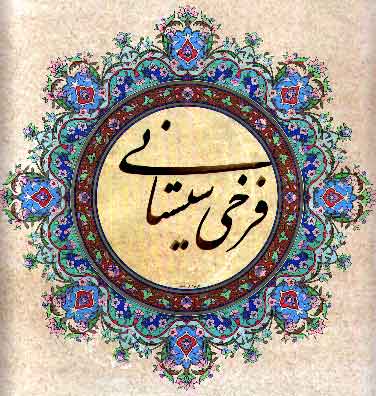 فرخی سیستانی